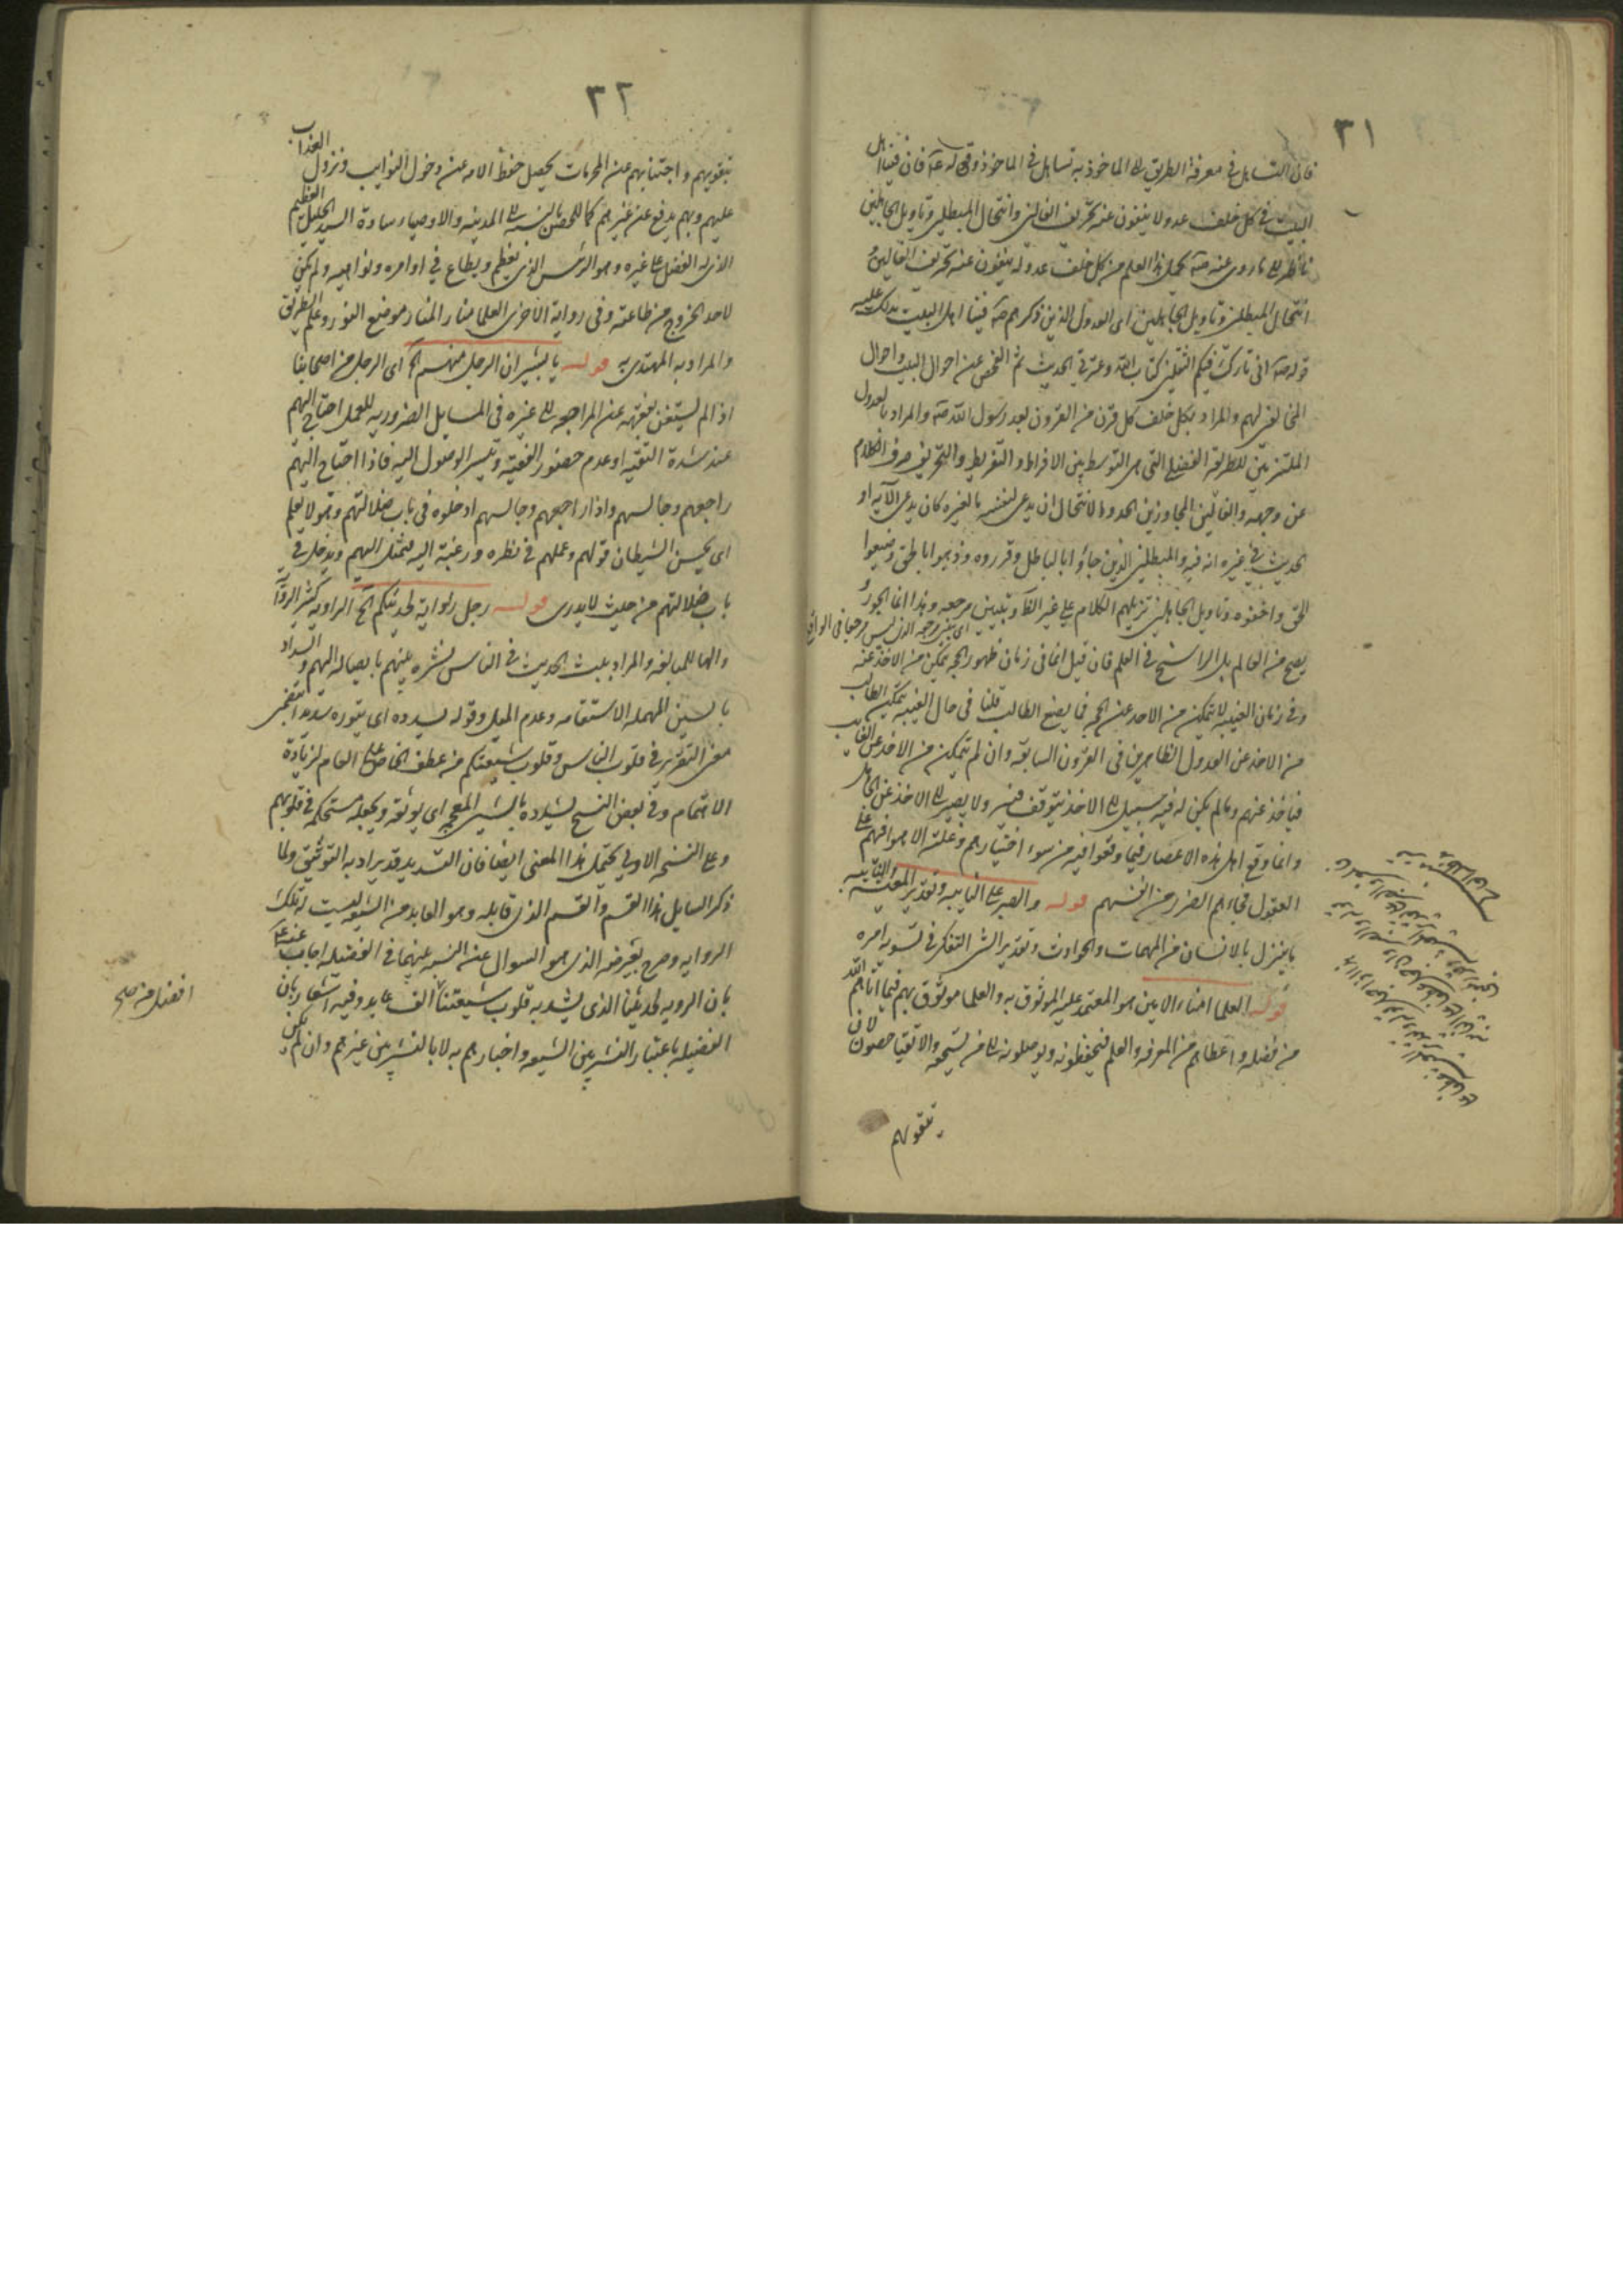 ٣١
فان التساهل في معرفة الطريق الى الماخوذ به تساهل في الماخوذ وقوله عۤ فان فينا اهل
البيت في كل خلف عدولا ينفون عنه تحريف الغالين وانتحال المبطلين وتاويل الجاهلين
ناظر الى ما روى عنه صۤ يحمل هذا العلم من كل خلف عدوله ينفون عنه تحريف الغالين و
انتحال المبطلين وتاويل الجاهلين اى العدول الذين ذكرهم صۤ فينا اهل البيت يدلك عليه
قوله صۤ انى تارك فيكم الثقلين كتاب الله وعترتي الحديث ثم الفحص عن احوال البيت واحوال
المخالفين لهم والمراد بكل خلف كل قرن من القرون بعد رسول الله صۤ والمراد بالعدول
الملتزمين للطريقة الفضلى التى هى التوسط بين الافراط والتفريط والتحريف صرف الكلام
عن وجهه والغالين المجاوزين الحد والانتحال ان يدعى لنفسه ما لغيره كان يدعى الآية او
الحديث في غيره انه فيه والمبطلين الذين جاؤا بالباطل وقرروه وذهبوا بالحق وضيعوا
الحق واخفوه وتاويل الجاهلين تنزيلهم الكلام على غير الظۤ وتبيين مرجعه وهذا انما الجور و
اى تبيين مرجعه الذى ليس مرجعا في الواقع
يصح من العالم بل الراسخ في العلم فان قيل انما في زمان ظهور الحجه يمكن من الاخذ عنه
وفى زمان الغيبه لا يتمكن من الاخذ عن الحجه فما يصنع الطالب قلنا في حال الغيبه يتمكن الطالب
من الاخذ عن العدول الظاهرين فى القرون السابقه وان لم يتمكن من الاخذ عن الغايب
فياخذ عنهم وما لم يكن له فيه سبيل الى الاخذ يتوقف فيه ولا يصير الى الاخذ عن الجاهل
وانما وقع اهل هذه الاعصار فيما وقعوا فيه من سوء اختيارهم وغلبة الاهواء فهم على
العقول فجاءهم الضرر من انفسهم قوله والصبر على النايبه وتقدير المعيشه والنايبه
ما ينزل بالانسان من المهمات والحوادث وتقدير الشئ التفكر في تسويه امره
قوله العلما امناء الامين هو المعتمد عليه الموثوق به والعلما موثوق بهم فيما آتاهم الله
من فضله واعطاهم من المعرفه والعلم فيحفظونه ويوصلونه الى من يستحقه والاتقيا حصون لان
بتقويهم
٣٢
بتقويهم واجتنابهم عن المحرمات يحصل حفظ الامه عن دخول النوايب ونزول العذاب
عليهم وبهم يدفع عن غيرهم كما للحصن بالنسبه الى المدينه والاوصياء سادة السيد الجليل العظيم
الذى له الفضل على غيره وهو الرئيس الذى يعظم ويطاع في اوامره ونواهيه ولم يكن
لاحد الخروج من طاعته وفى رواية الاخرى العلما منار المنار موضع النور وعلم الطريق
والمراد به المهتدى به قوله يا بشير ان الرجل منهم الخ اى الرجل من اصحابنا
اذا لم يستغن بفقهه عن المراجعه الى غيره فى المسايل الضروريه للعمل احتاج اليهم
عند شدة التقيه او عدم حضور الفقيه وتيسر الوصول اليه فاذا احتاج اليهم
راجعهم وجالسهم واذا راجعهم وجالسهم ادخلوه فى باب ضلالتهم وهو لا يعلم
اى يحسن الشيطان قولهم وعملهم في نظره ورغبة اليه فيميل اليهم ويدخل في
باب ضلالتهم من حيث لا يدرى قوله رجل راوية لحديثكم الخ الراويه كثير الرواۤ
والها للمبالغه والمراد ببث الحديث في الناس نشره بينهم بايصاله اليهم والسداد
بالسين المهمله الاستقامه وعدم الميل وقوله يسدده اى يقرره سديدا يتضمن
معنى التقرير في قلوب الناس وقلوب شيعتكم من عطف الخاص على العام لزيادة
الاهتمام وفى بعض النسخ يشدده بالشين المعجمه اى يوثقه ويجعله مستحكمه فى قلوبهم
وعلى النسخه الاولى يحتمل هذا المعنى ايضا فان التسديد قد يراد به التوثيق ولما
ذكر السايل هذا القسم والقسم الذى قابله وهو العابد من الشيعه ليست له تلك
الروايه وصرح بغرضه الذى هو السوال عن النسبه بينهما في الفضيله اجاب عنه عۤ
بان الرويه لحديثنا الذى يشد به قلوب شيعتنا الف عابد وفيه اشعار بان
الفضيله باعتبار النشر بين الشيعه واخبارهم به لا بالنشر بين غيرهم وان لم يكن
افضل من صح